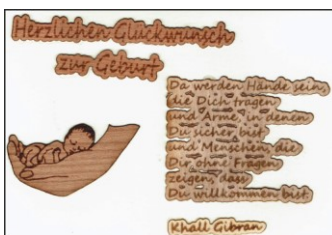 Herzlichen Glückwunsch
zur Geburt
Da werden Hände sein,
die Dich tragen
und Arme, in denen
Du sicher bist
und Menschen, die
Dir ohne Fragen
zeigen, dass
Du willkommen bist.
Khall Gibran